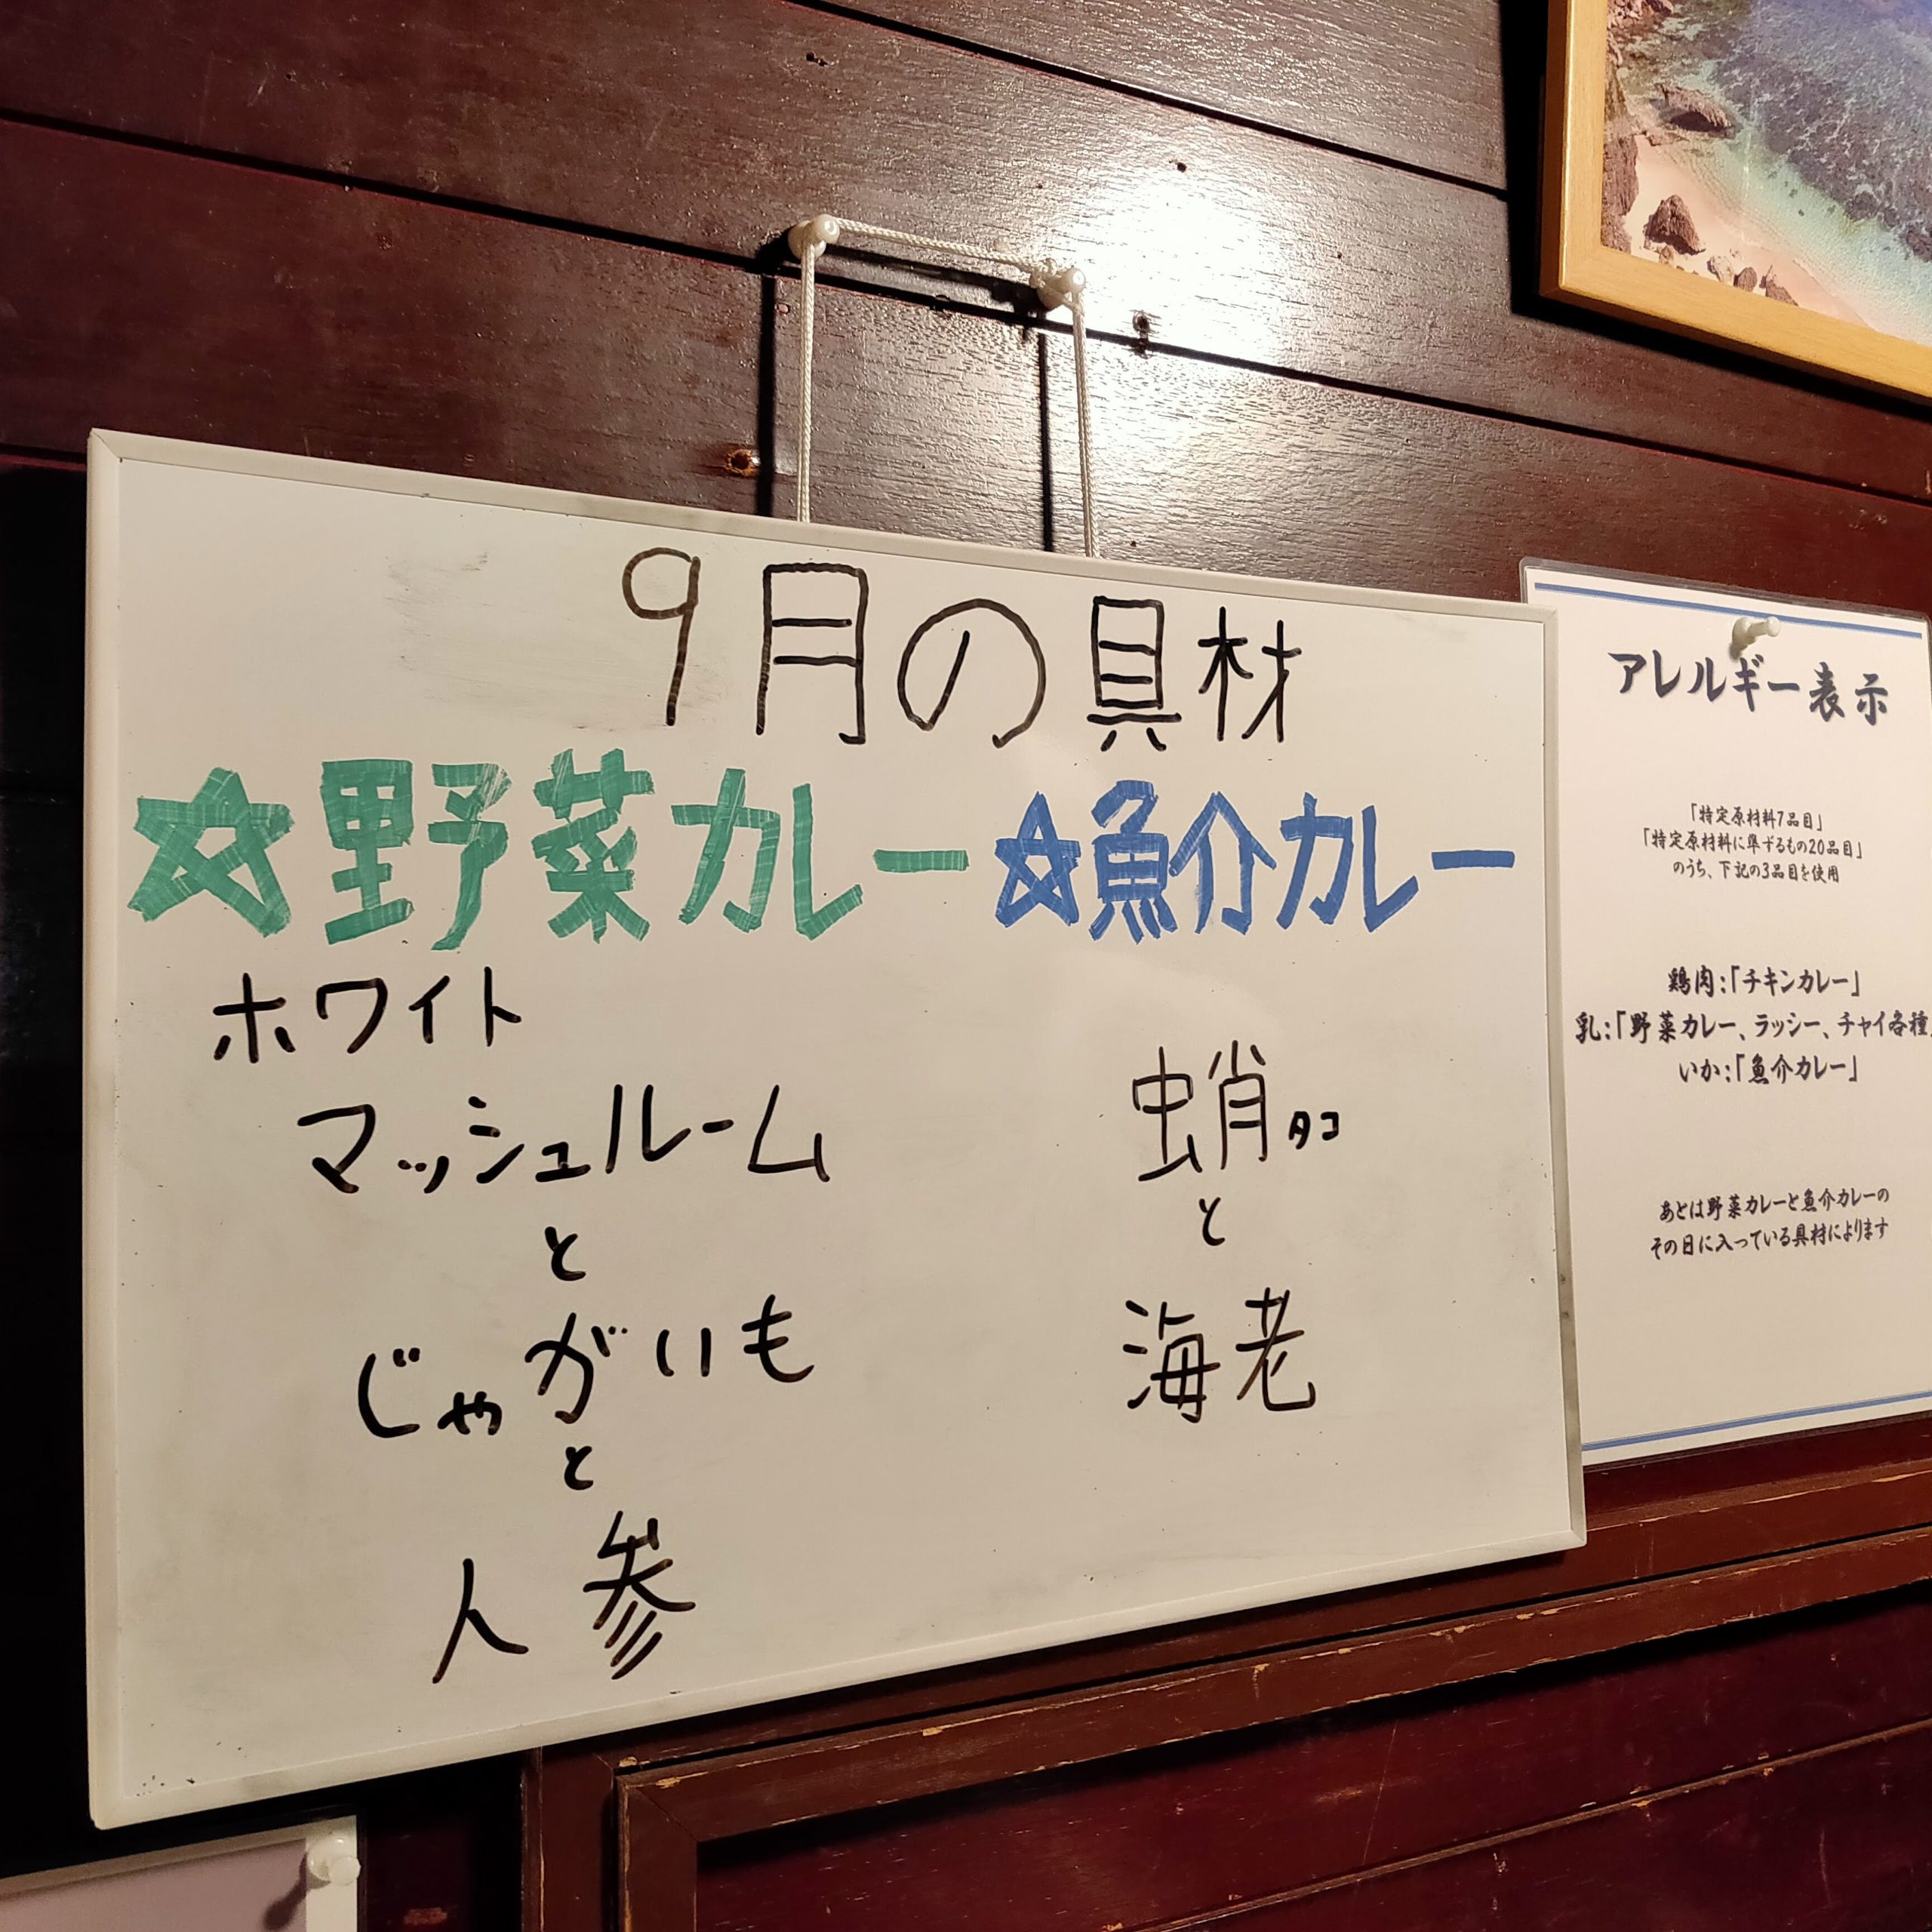 9月の具材
☆野菜カレー
ホワイト
マッシュルーム
と
じゃがいも
と
人参
☆魚介カレー
蛸タコ
と
海老
アレルギー表示
「特定原材料7品目」
「特定原材料に準ずるもの20品目」
のうち、下記の3品目を使用
鶏肉:「チキンカレー」
乳:「野菜カレー、ラッシー、チャイ各種」
いか:「魚介カレー」
あとは野菜カレーと魚介カレーの
その日に入っている具材によります